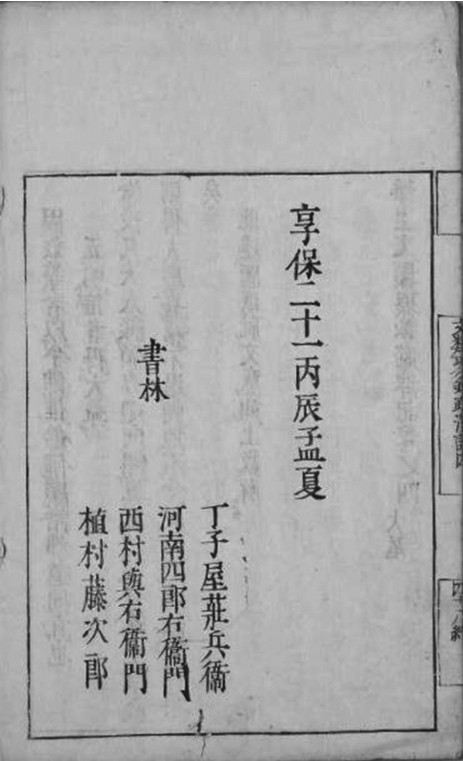 享保二十一丙辰孟夏
書林
丁子屋莊兵衞
河南四郎右衞門
西村與右衞門
植村藤次郎